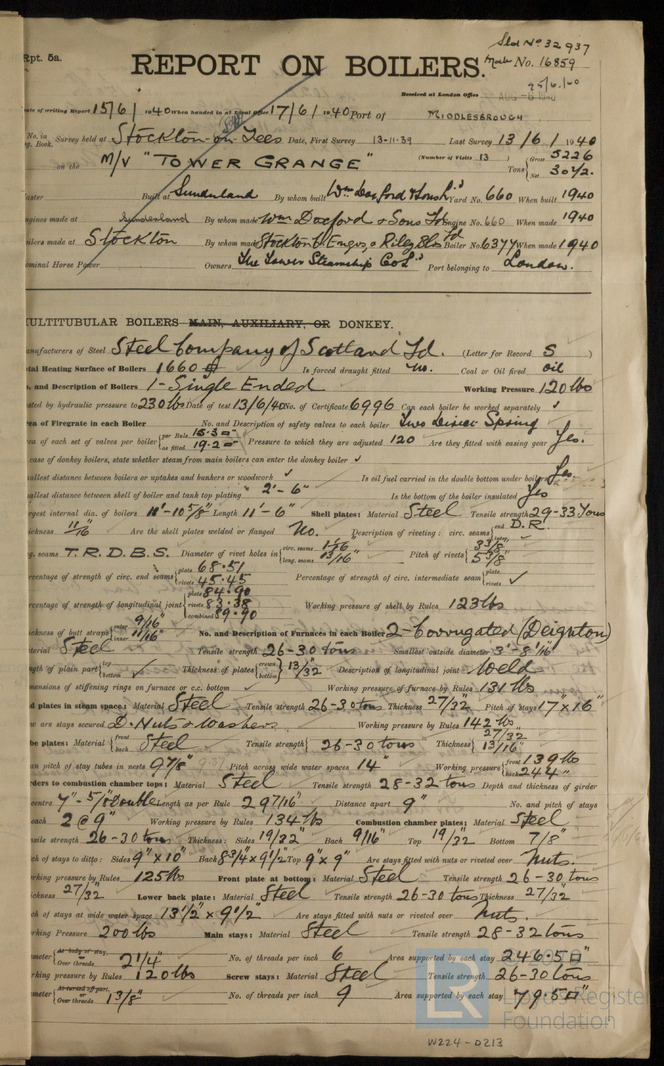 Sld No. 32937
Rpt. 5a. REPORT ON BOILERS. No. 16859
25/6/40
Received at London Office AUG -
writing Report 15/6/1940 When handed in at Local Office 17/6/1940 Port of MIDDLESBROUGH
No. in Survey held at Stockton-on-Tees Date, First Survey 13-11-39 Last Survey 13/6/1940
Book. on the M/V "TOWER GRANGE" (Number of Visits 13) Tons {Gross 5226 Net 3042.
Built at Sunderland By whom built Wm Doxford & Sons Ld Yard No. 660 When built 1940
made at Sunderland By whom made Wm Doxford & Sons Ld Engine No. 660 When made 1940
made at Stockton By whom made Stockton Engrs & Riley Blrs Ld Boiler No. 6377 When made 1940
Horse Power Owners The Tower Steamship Co Ld Port belonging to London.
MULTITUBULAR BOILERS MAIN, AUXILIARY, OR DONKEY.
of Steel Steel Company of Scotland Ld. (Letter for Record S)
Heating Surface of Boilers 1660 Is forced draught fitted No. Coal or Oil fired oil
and Description of Boilers 1-Single Ended Working Pressure 120 lbs
by hydraulic pressure to 230 lbs Date of test 13/6/40 No. of Certificate 6996 Can each boiler be worked separately ✓
of Firegrate in each Boiler No. and Description of safety valves to each boiler Two Direct Spring
of each set of valves per boiler {per Rule 15.3 as fitted 19.2 Pressure to which they are adjusted 120 Are they fitted with easing gear Yes.
case of donkey boilers, state whether steam from main boilers can enter the donkey boiler ✓
distance between boilers or uptakes and bunkers or woodwork ✓ Is oil fuel carried in the double bottom under boilers Yes.
distance between shell of boiler and tank top plating 2'-6" Is the bottom of the boiler insulated Yes
internal dia. of boilers 10'-10 5/8" Length 11'-6" Shell plates: Material Steel Tensile strength 29-33 Tons
11/16" Are the shell plates welded or flanged No. Description of riveting: circ. seams {end D.R.
seams T.R.D.B.S. Diameter of rivet holes in {circ. seams 1 1/16" long. seams 13/16" Pitch of rivets {3 3/8" 5 3/8"
of strength of circ. end seams {plate 68.51 rivets 45.45 Percentage of strength of circ. intermediate seam {plate rivets ✓
of strength of longitudinal joint {plate 84.90 rivets 83.38 combined 89.90 Working pressure of shell by Rules 123 lbs
of butt straps {outer 9/16" inner 11/16" No. and Description of Furnaces in each Boiler 2-Corrugated (Deighton)
Steel Tensile strength 26-30 tons Smallest outside diameter 3'-8 1/16"
of plain part {top bottom ✓ Thickness of plates {crown bottom 13/32" Description of longitudinal joint Weld
of stiffening rings on furnace or c.c. bottom ✓ Working pressure of furnace by Rules 131 lbs
plates in steam space: Material Steel Tensile strength 26-30 tons Thickness 27/32" Pitch of Stays 17" x 16"
are stays secured D. Nuts & Washers Working pressure by Rules 142 lbs
plates: Material {front back Steel Tensile strength {26-30 tons Thickness {27/32" 13/16"
pitch of stay tubes in nests 9 7/8" Pitch across wide water spaces 14" Working pressure {front 139 lbs back 244"
to combustion chamber tops: Material Steel Tensile strength 28-32 tons Depth and thickness of girder
centre 7"-5/8 double Length as per Rule 29 7/16" Distance apart 9" No. and pitch of stays
each 2 @ 9" Working pressure by Rules 134 lbs Combustion chamber plates: Material Steel
strength 26-30 tons Thickness: Sides 19/32" Back 9/16" Top 19/32" Bottom 7/8"
of stays to ditto: Sides 9" x 10" Back 8 3/4 x 9 1/2 Top 9" x 9" Are stays fitted with nuts or riveted over Nuts.
pressure by Rules 125 lbs Front plate at bottom: Material Steel Tensile strength 26-30 tons
27/32" Lower back plate: Material Steel Tensile strength 26-30 tons Thickness 27/32"
of stays at wide water space 13 1/2" x 9 1/2 Are stays fitted with nuts or riveted over Nuts.
Pressure 200 lbs Main stays: Material Steel Tensile strength 28-32 tons
At body of stay, Over threads 2 1/4" No. of threads per inch 6 Area supported by each stay 246.5 □"
pressure by Rules 120 lbs Screw stays: Material Steel Tensile strength 26-30 tons
At turned off part, Over threads 1 3/8" No. of threads per inch 9 Area supported by each stay 79.5 □"
LR Lloyd's Register Foundation
W224-0213